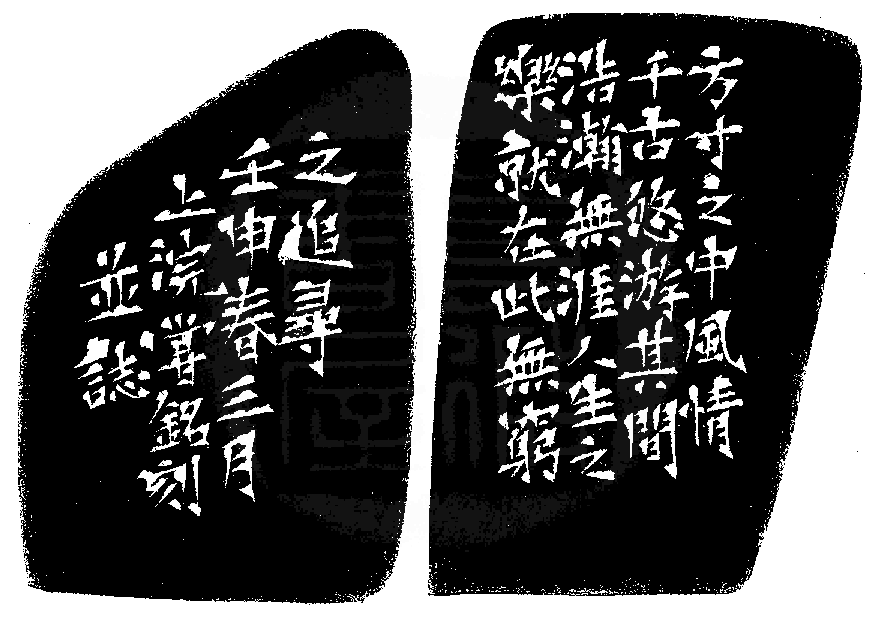 方寸之中風情
千古悠游其間
浩瀚無涯人生之
樂就在此無窮
之追尋
壬申春三月
上浣掌銘刻
並誌